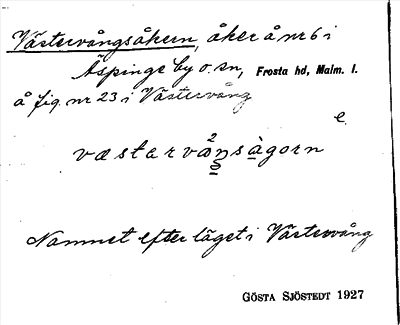 Västervångsåkern, åker å nr 6 i
Äspinge by o. sn, Frosta hd, Malm. l.
å fig. nr 23 i Västervång
e.
væstərvaŋsàgorn
2
Namnet efter läget i Västervång
GÖSTA SJÖSTEDT 1927